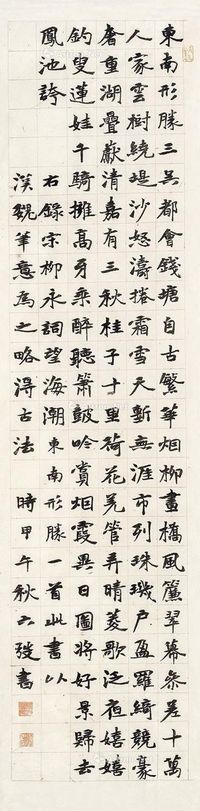 東南形勝三吳都會錢塘自古繁華烟柳畫橋風簾翠幕參差十萬
人家雲樹繞堤沙怒濤捲霜雪天塹無涯市列珠璣戶盈羅綺競豪
奢重湖疊巘清嘉有三秋桂子十里荷花羌管弄晴菱歌泛夜嬉嬉
釣叟蓮娃千騎擁高牙乘醉聽簫鼓吟賞烟霞異日圖將好景歸去
鳳池誇
右錄宋柳永詞望海潮東南形勝一首此書以
漢魏筆意為之略得古法 時甲午秋六書